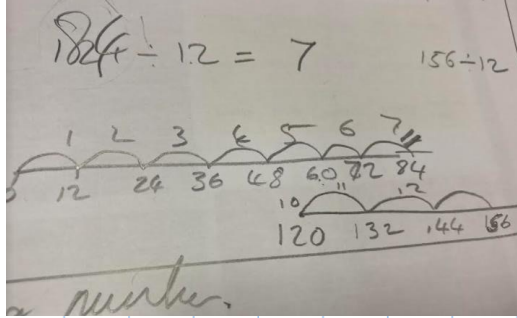 84 ÷ 12 = 7
156 ÷ 12
1 2 3 4 5 6 7
12 24 36 48 60 72 84
10 11 12
120 132 144 156
a number.